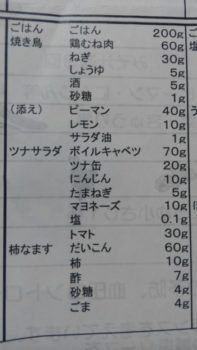 ごはん ごはん 200g
焼き鳥 鶏むね肉 60g
ねぎ 30g
しょうゆ 5g
酒 5g
砂糖 1g
(添え) ピーマン 40g
レモン 10g
サラダ油 1g
ツナサラダ ボイルキャベツ 70g
ツナ缶 20g
にんじん 10g
たまねぎ 5g
マヨネーズ 10g
塩 0.1g
トマト 30g
柿なます だいこん 60g
柿 10g
酢 7g
砂糖 4g
ごま 4g